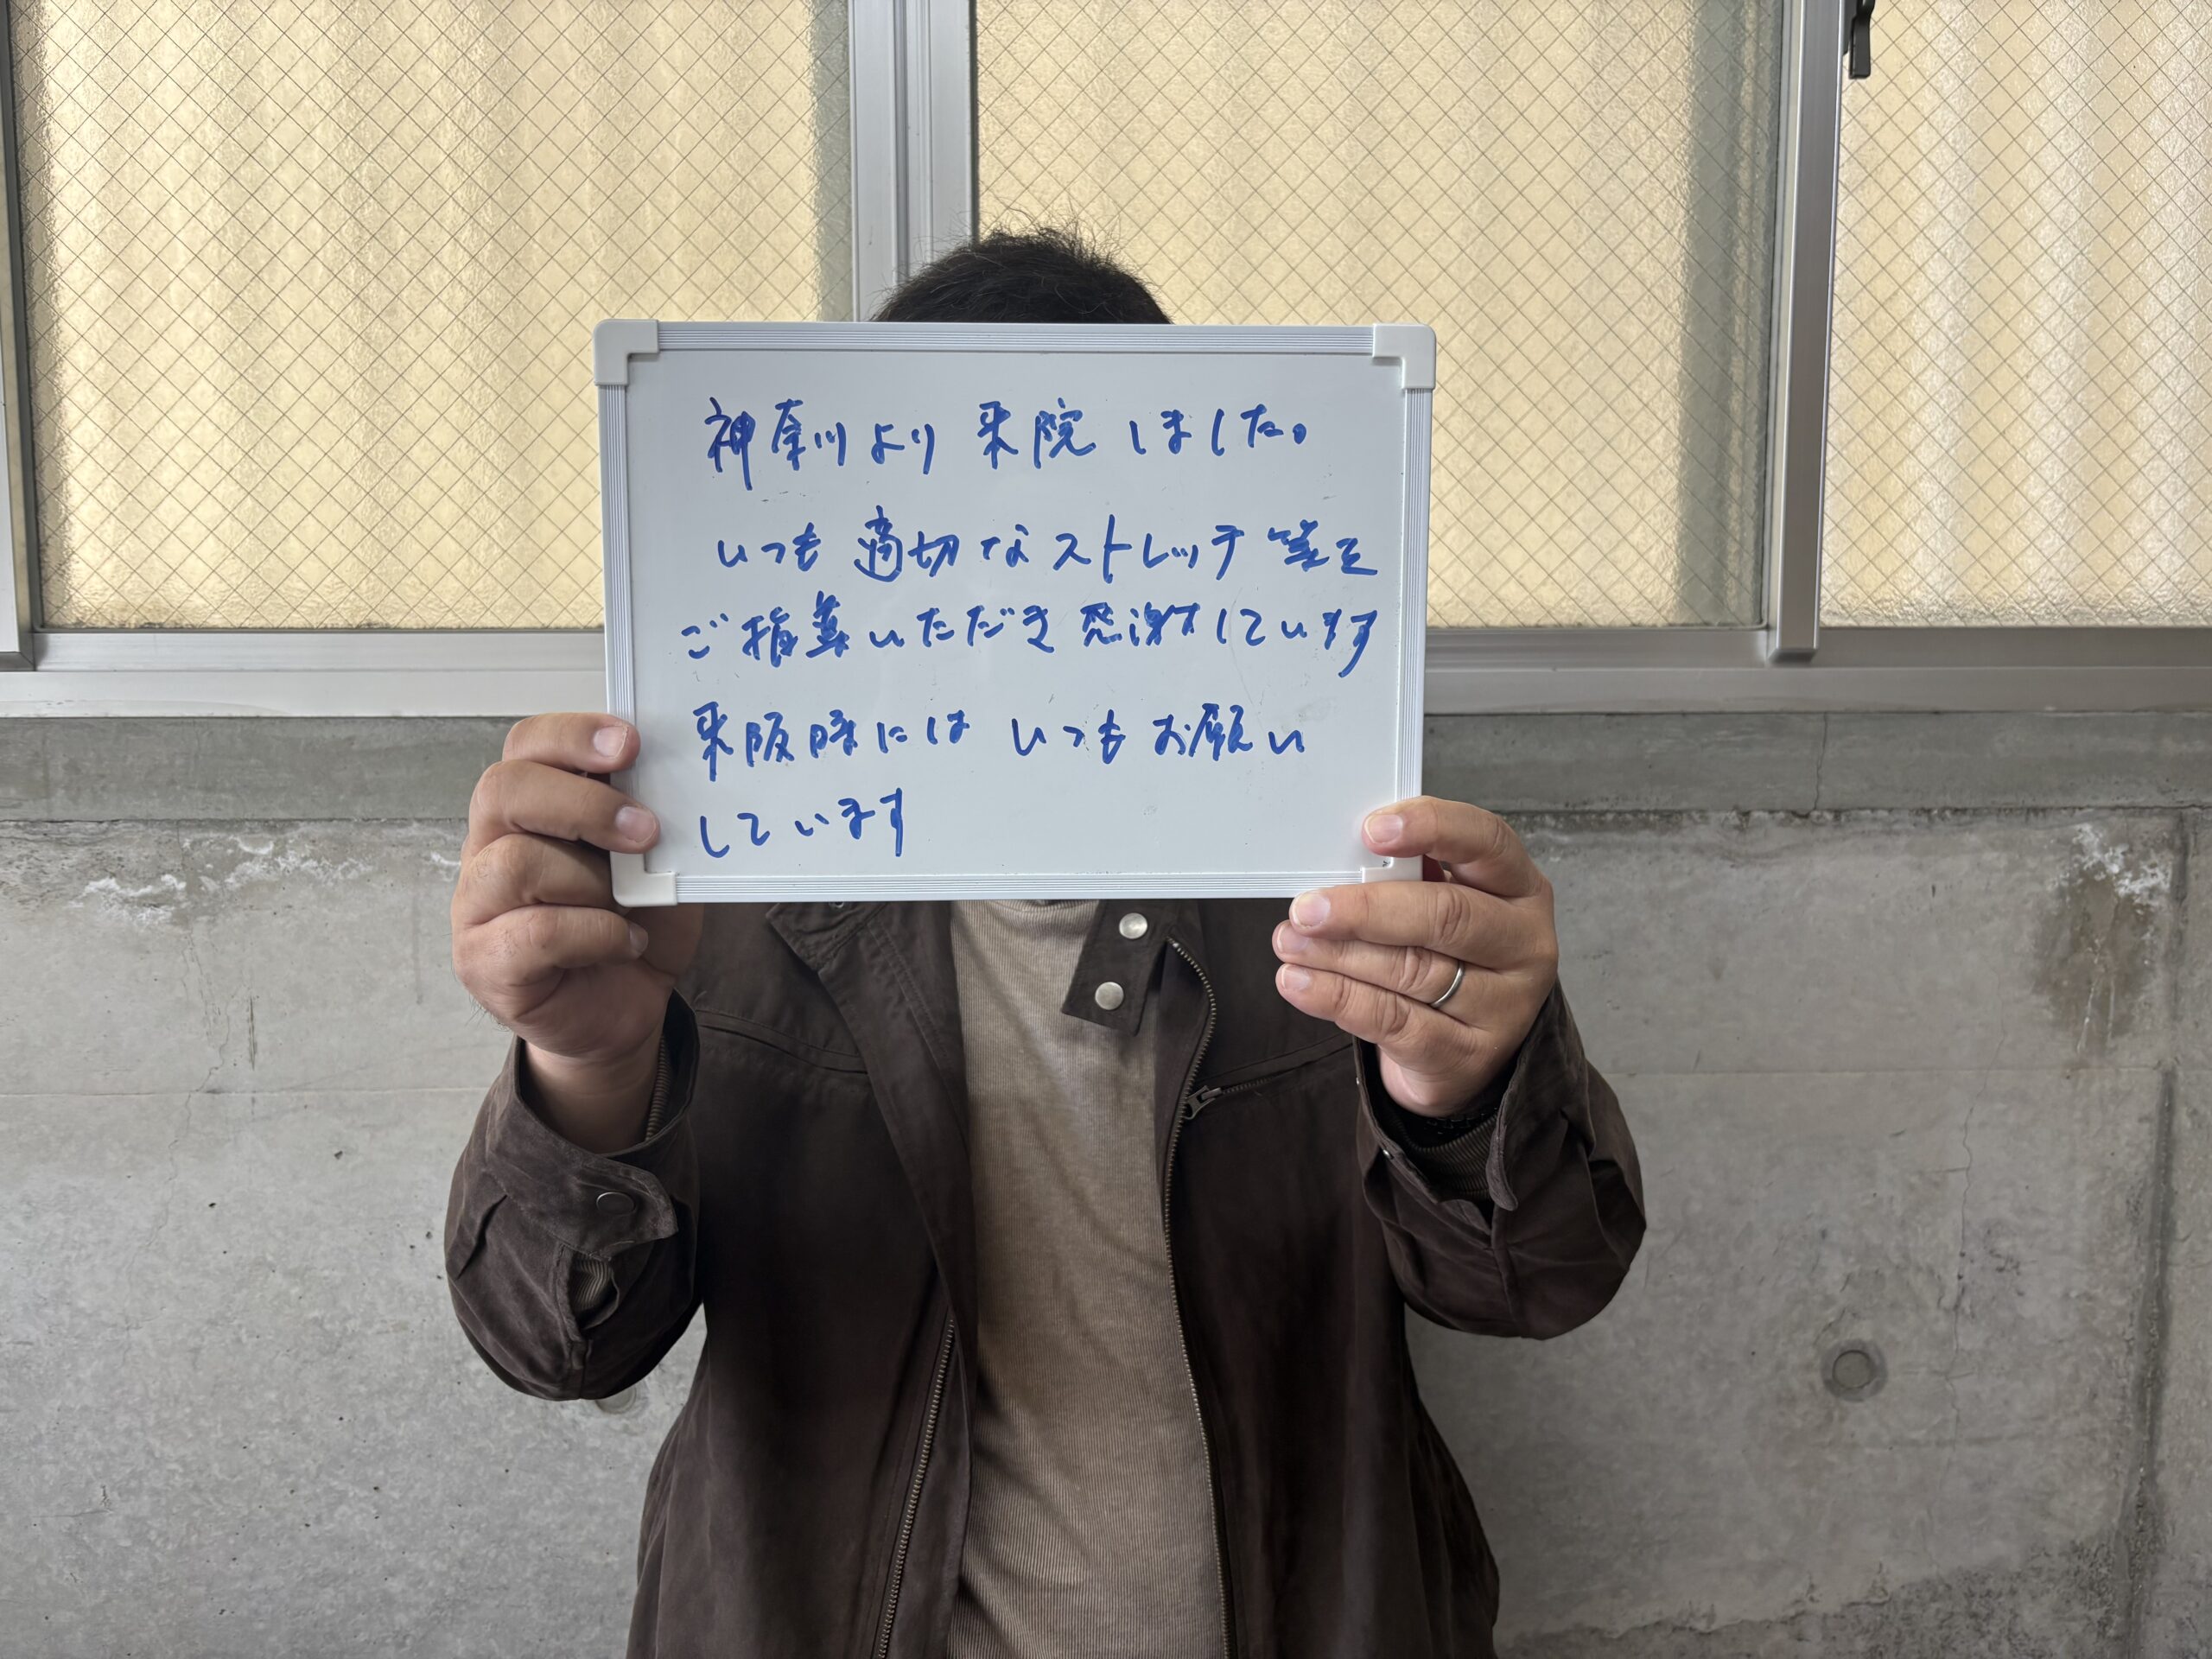 神奈川より来院しました。
いつも適切なストレッチ等を
ご指導いただき感謝しています
来阪時にはいつもお願い
しています